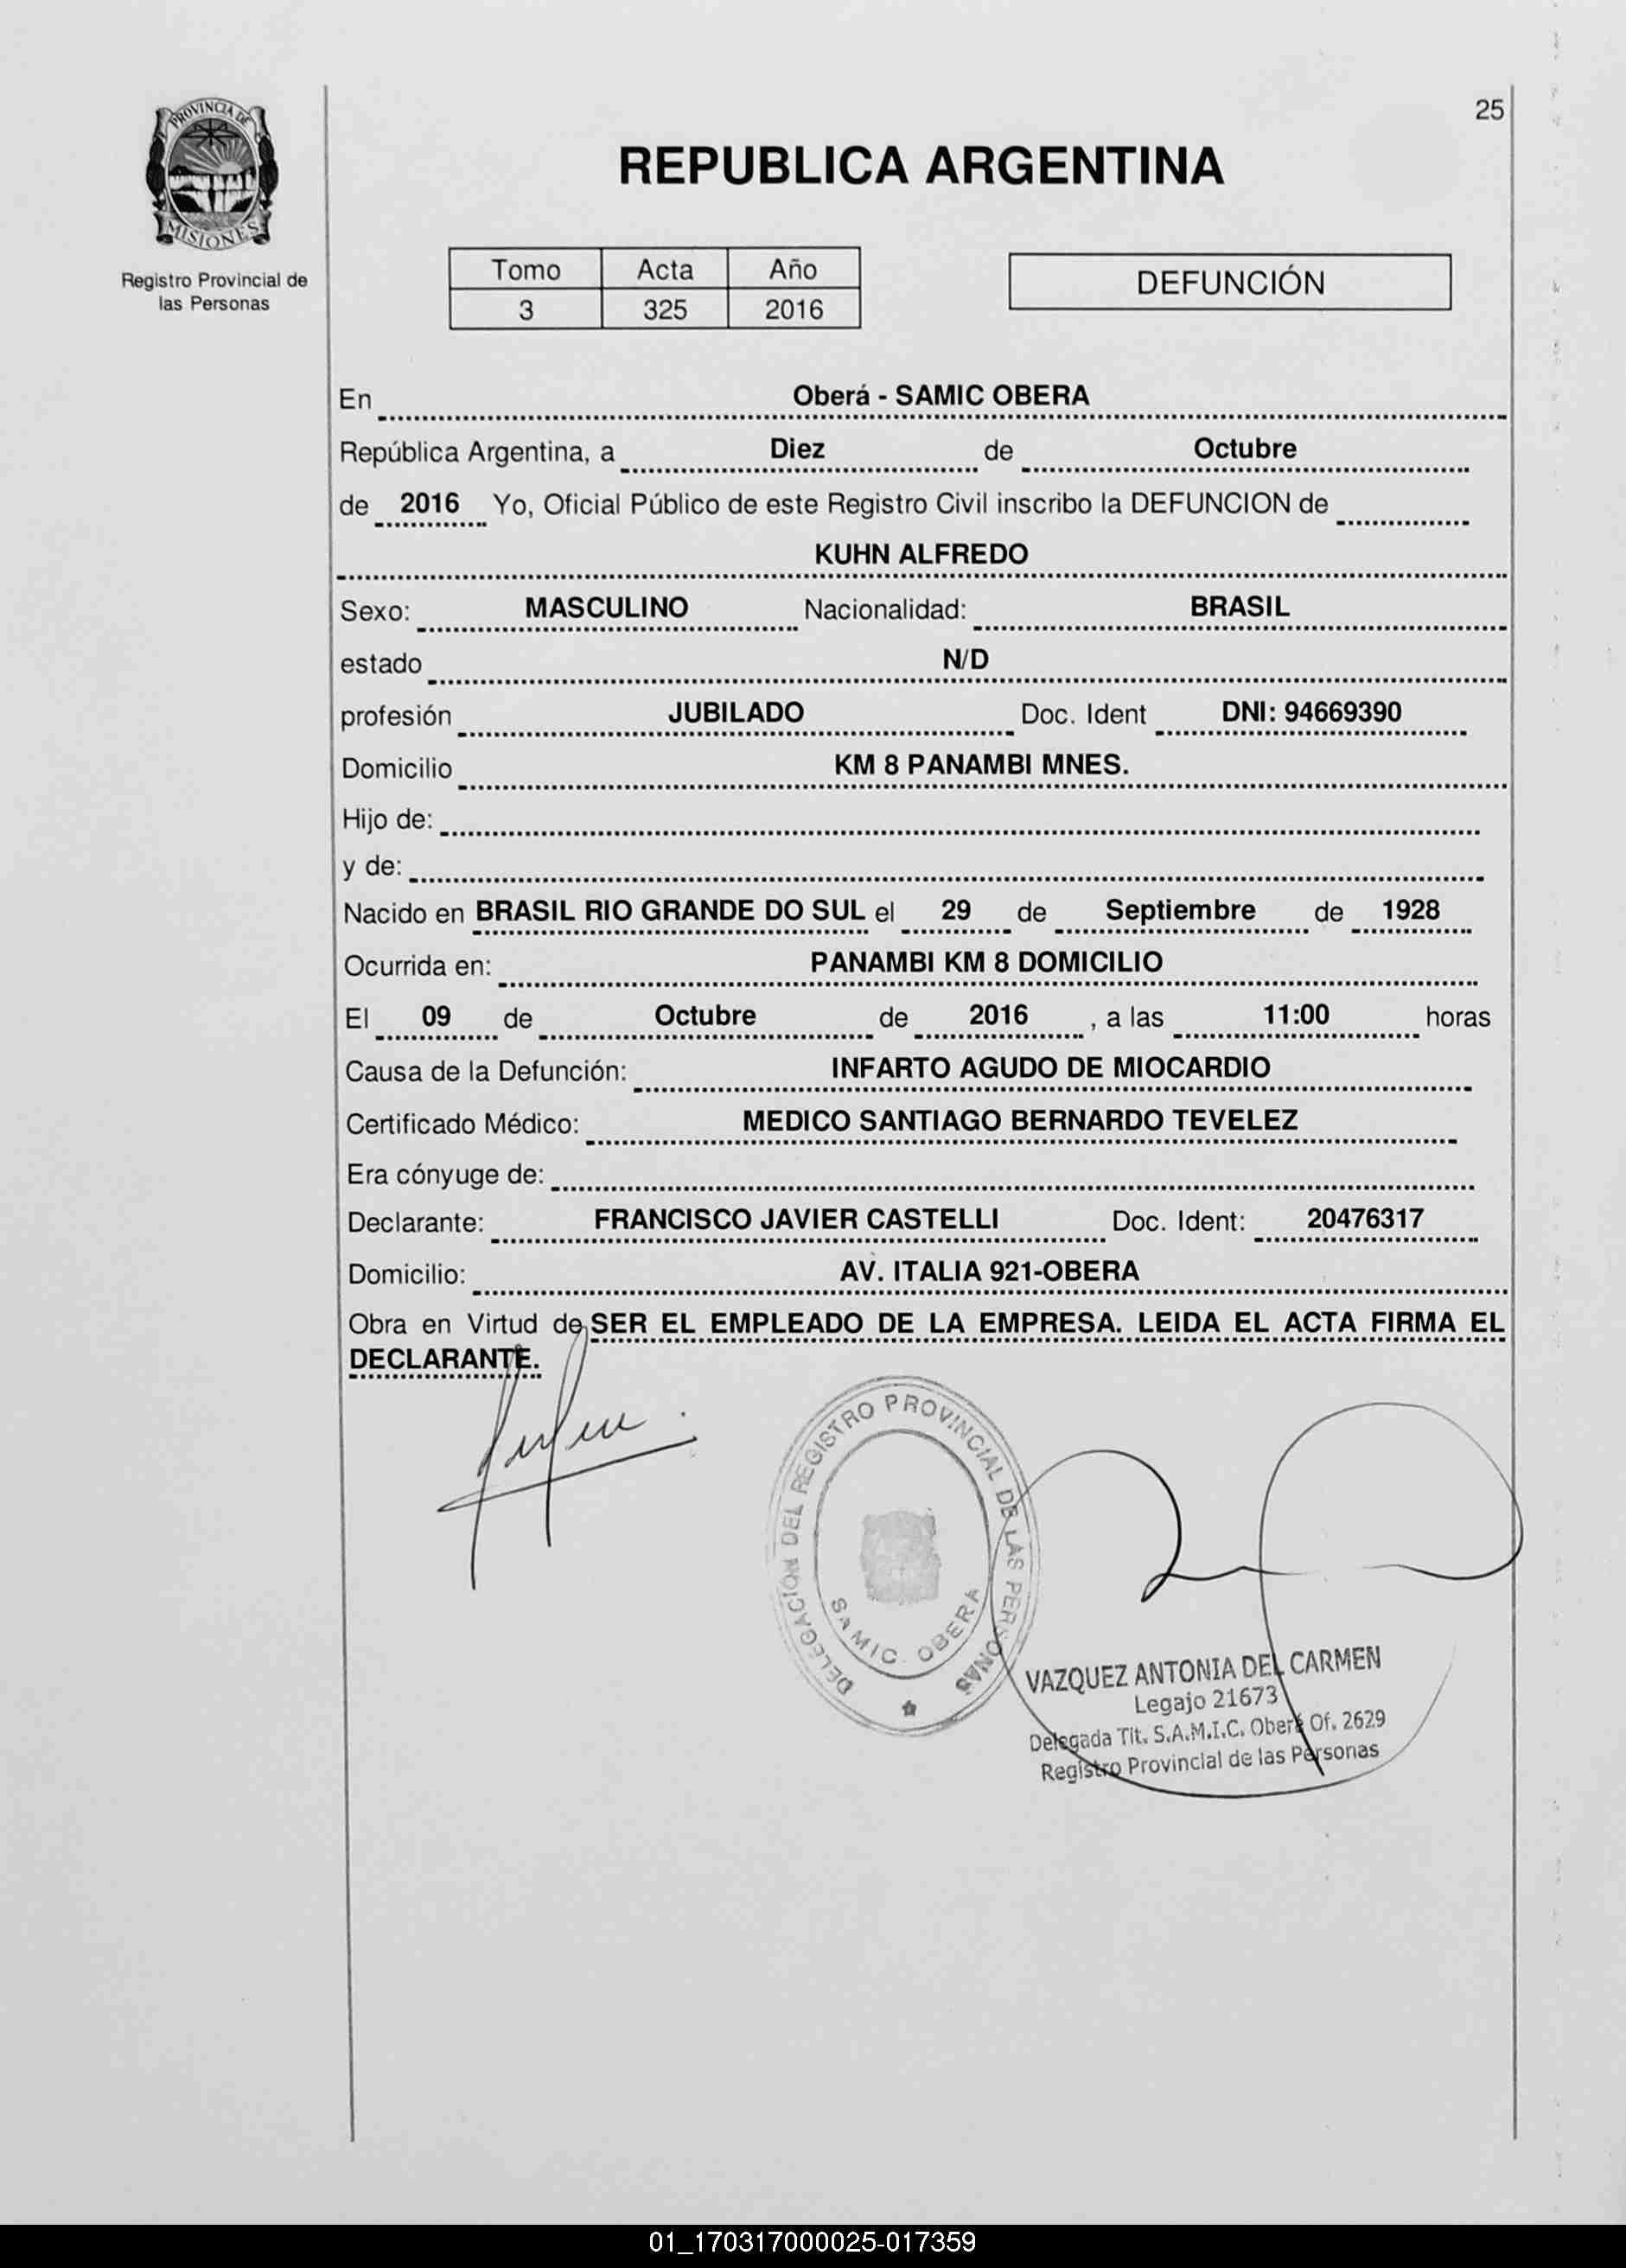 25
PROVINCIA DE
MISIONES
Registro Provincial de
las Personas
REPUBLICA ARGENTINA
Tomo Acta Año
3 325 2016
DEFUNCIÓN
En Oberá - SAMIC OBERA
República Argentina, a Diez de Octubre
de 2016 Yo, Oficial Público de este Registro Civil inscribo la DEFUNCION de
KUHN ALFREDO
Sexo: MASCULINO Nacionalidad: BRASIL
estado N/D
profesión JUBILADO Doc. Ident DNI: 94669390
Domicilio KM 8 PANAMBI MNES.
Hijo de:
y de:
Nacido en BRASIL RIO GRANDE DO SUL el 29 de Septiembre de 1928
Ocurrida en: PANAMBI KM 8 DOMICILIO
El 09 de Octubre de 2016 , a las 11:00 horas
Causa de la Defunción: INFARTO AGUDO DE MIOCARDIO
Certificado Médico: MEDICO SANTIAGO BERNARDO TEVELEZ
Era cónyuge de:
Declarante: FRANCISCO JAVIER CASTELLI Doc. Ident: 20476317
Domicilio: AV. ITALIA 921-OBERA
Obra en Virtud de SER EL EMPLEADO DE LA EMPRESA. LEIDA EL ACTA FIRMA EL
DECLARANTE.
DELEGACIÓN DEL REGISTRO PROVINCIAL DE LAS PERSONAS
SAMIC OBERA
VAZQUEZ ANTONIA DEL CARMEN
Legajo 21673
Delegada Tit. S.A.M.I.C. Oberá Of. 2629
Registro Provincial de las Personas
01_170317000025-017359